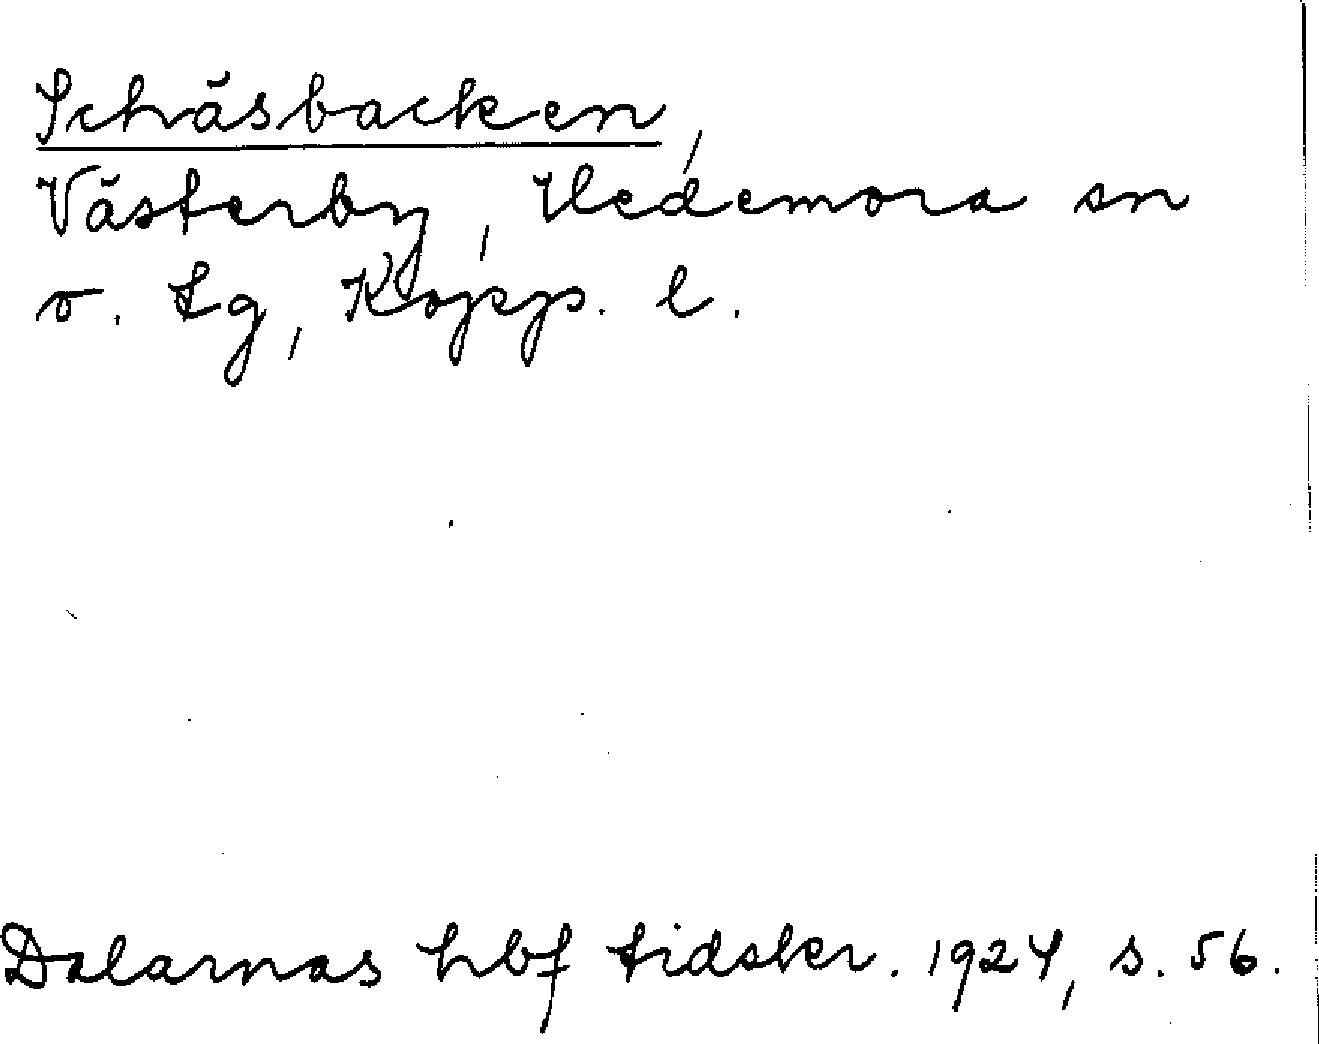 Schäsbacken,
Västerby, Hedemora sn
o. tg, Kopp. l.
Dalarnas hbf tidskr. 1924, s. 56.